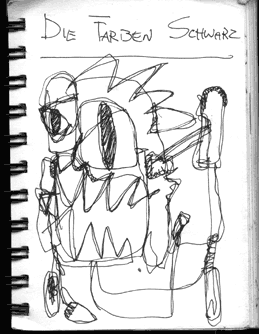 DIE FARBEN SCHWARZ